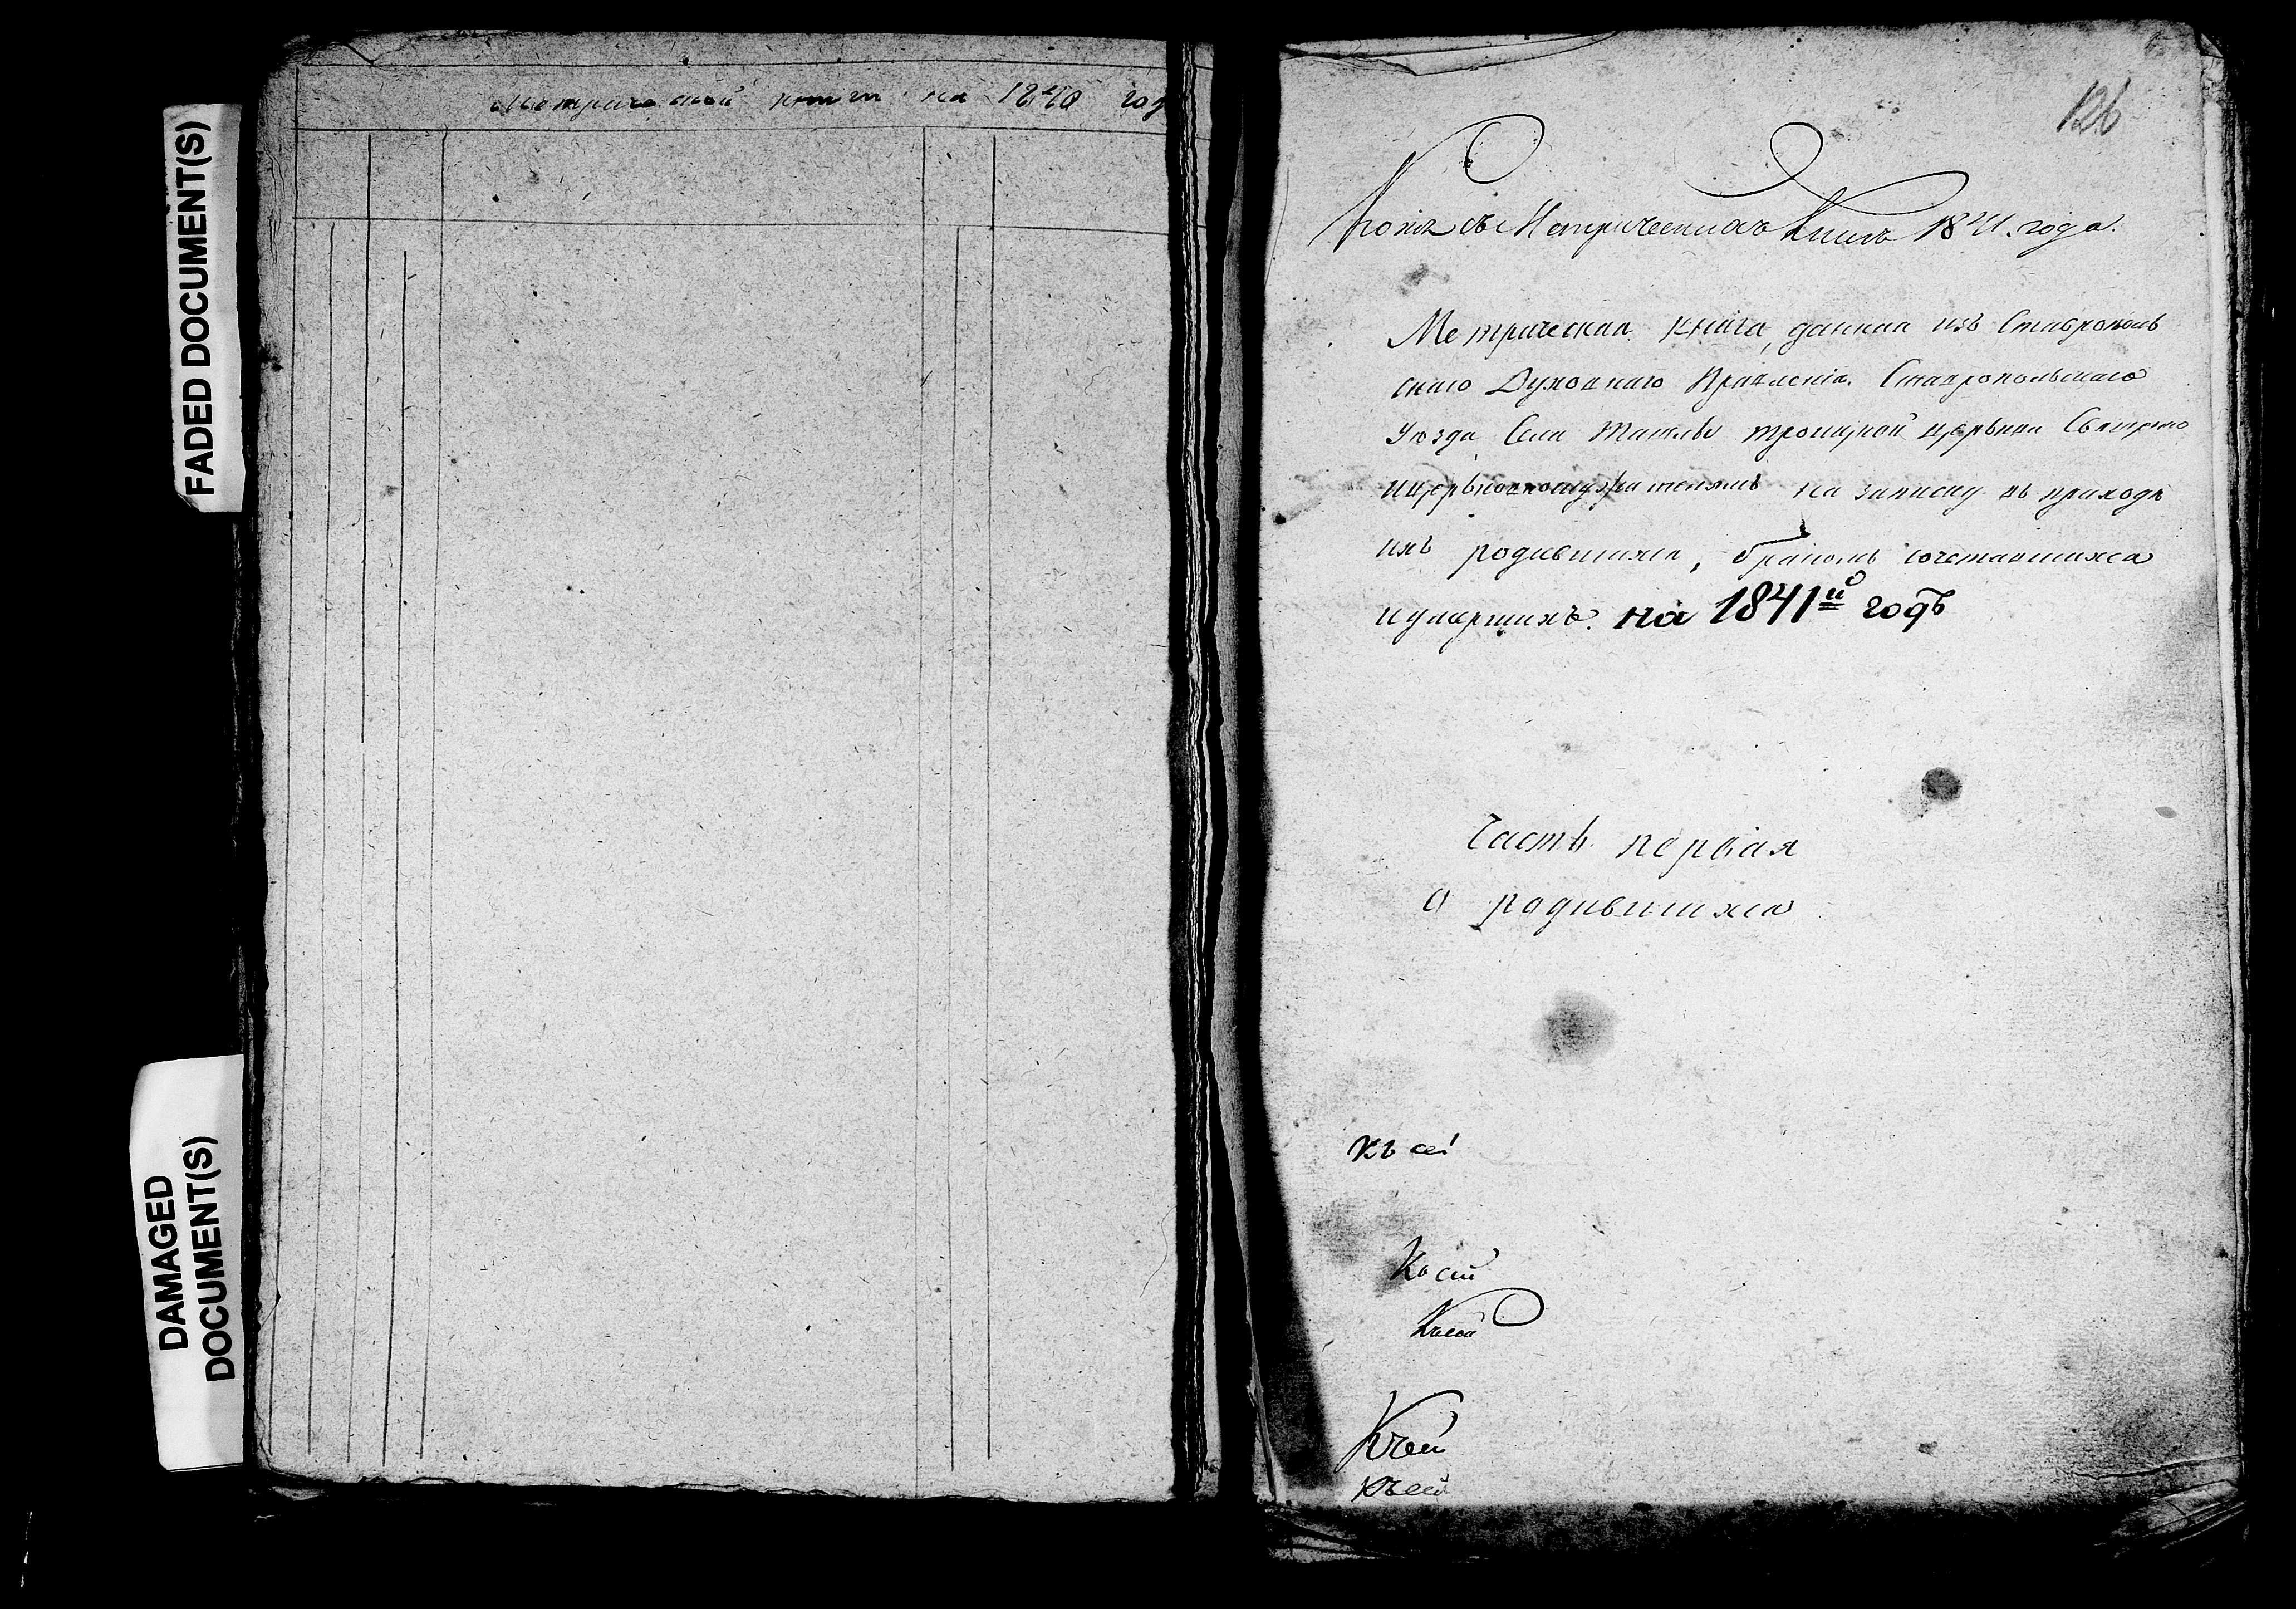 FADED DOCUMENT(S)
DAMAGED
DOCUMENT(S)
Метрической книги на 1840 год
126
Копія съ Метрическихъ Книгъ 1841. года.
Метрическая книга, данная изъ Ставрополь
скаго Духовнаго Правленія. Ставропольскаго
Уезда Села Ташлы троицкой церькви Священо
ицерьковнослужителямъ на записку въ приходе
ихъ родившихся, бракомъ сочетавшихся
иумершихъ. на 1841й годъ
Часть первая
О родившихся
Къ сей
Къ сей
Къ сей
Къ сей
Къ сей